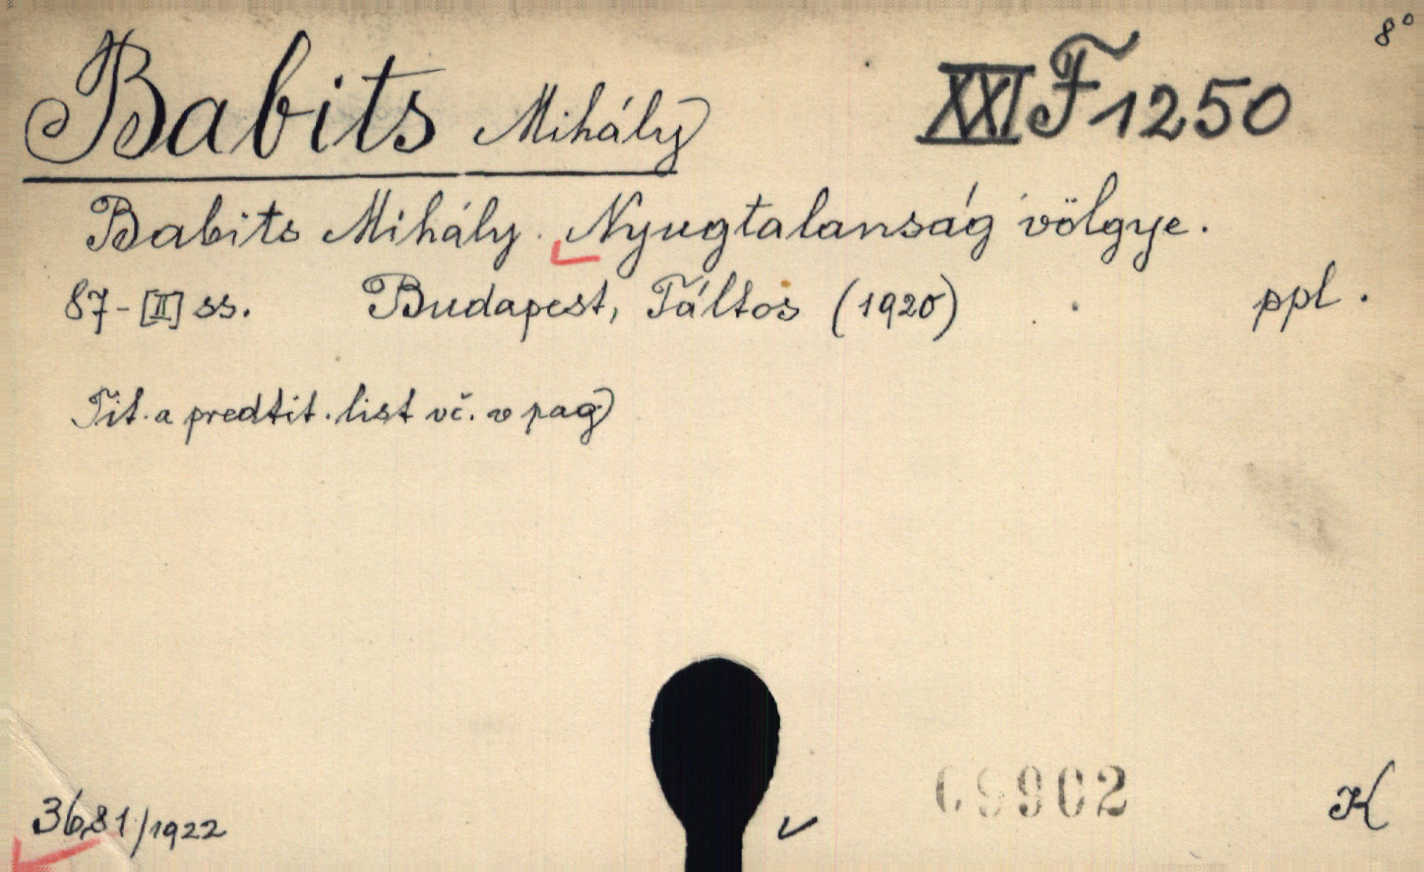 8°
Babits Mihály XXI F 1250
Babits Mihály. Nyugtalanság völgye.
87-[II] ss. Budapest, Táltos (1920) ppl.
Tit. a predtit. list vč. v pag
3681/1922
K